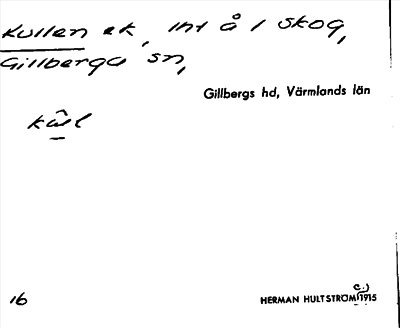 Kullen ek, int å / skog,
Gillberga sn,
Gillbergs hd, Värmlands län
kûl
16
HERMAN HULTSTRÖM (c.) 1915